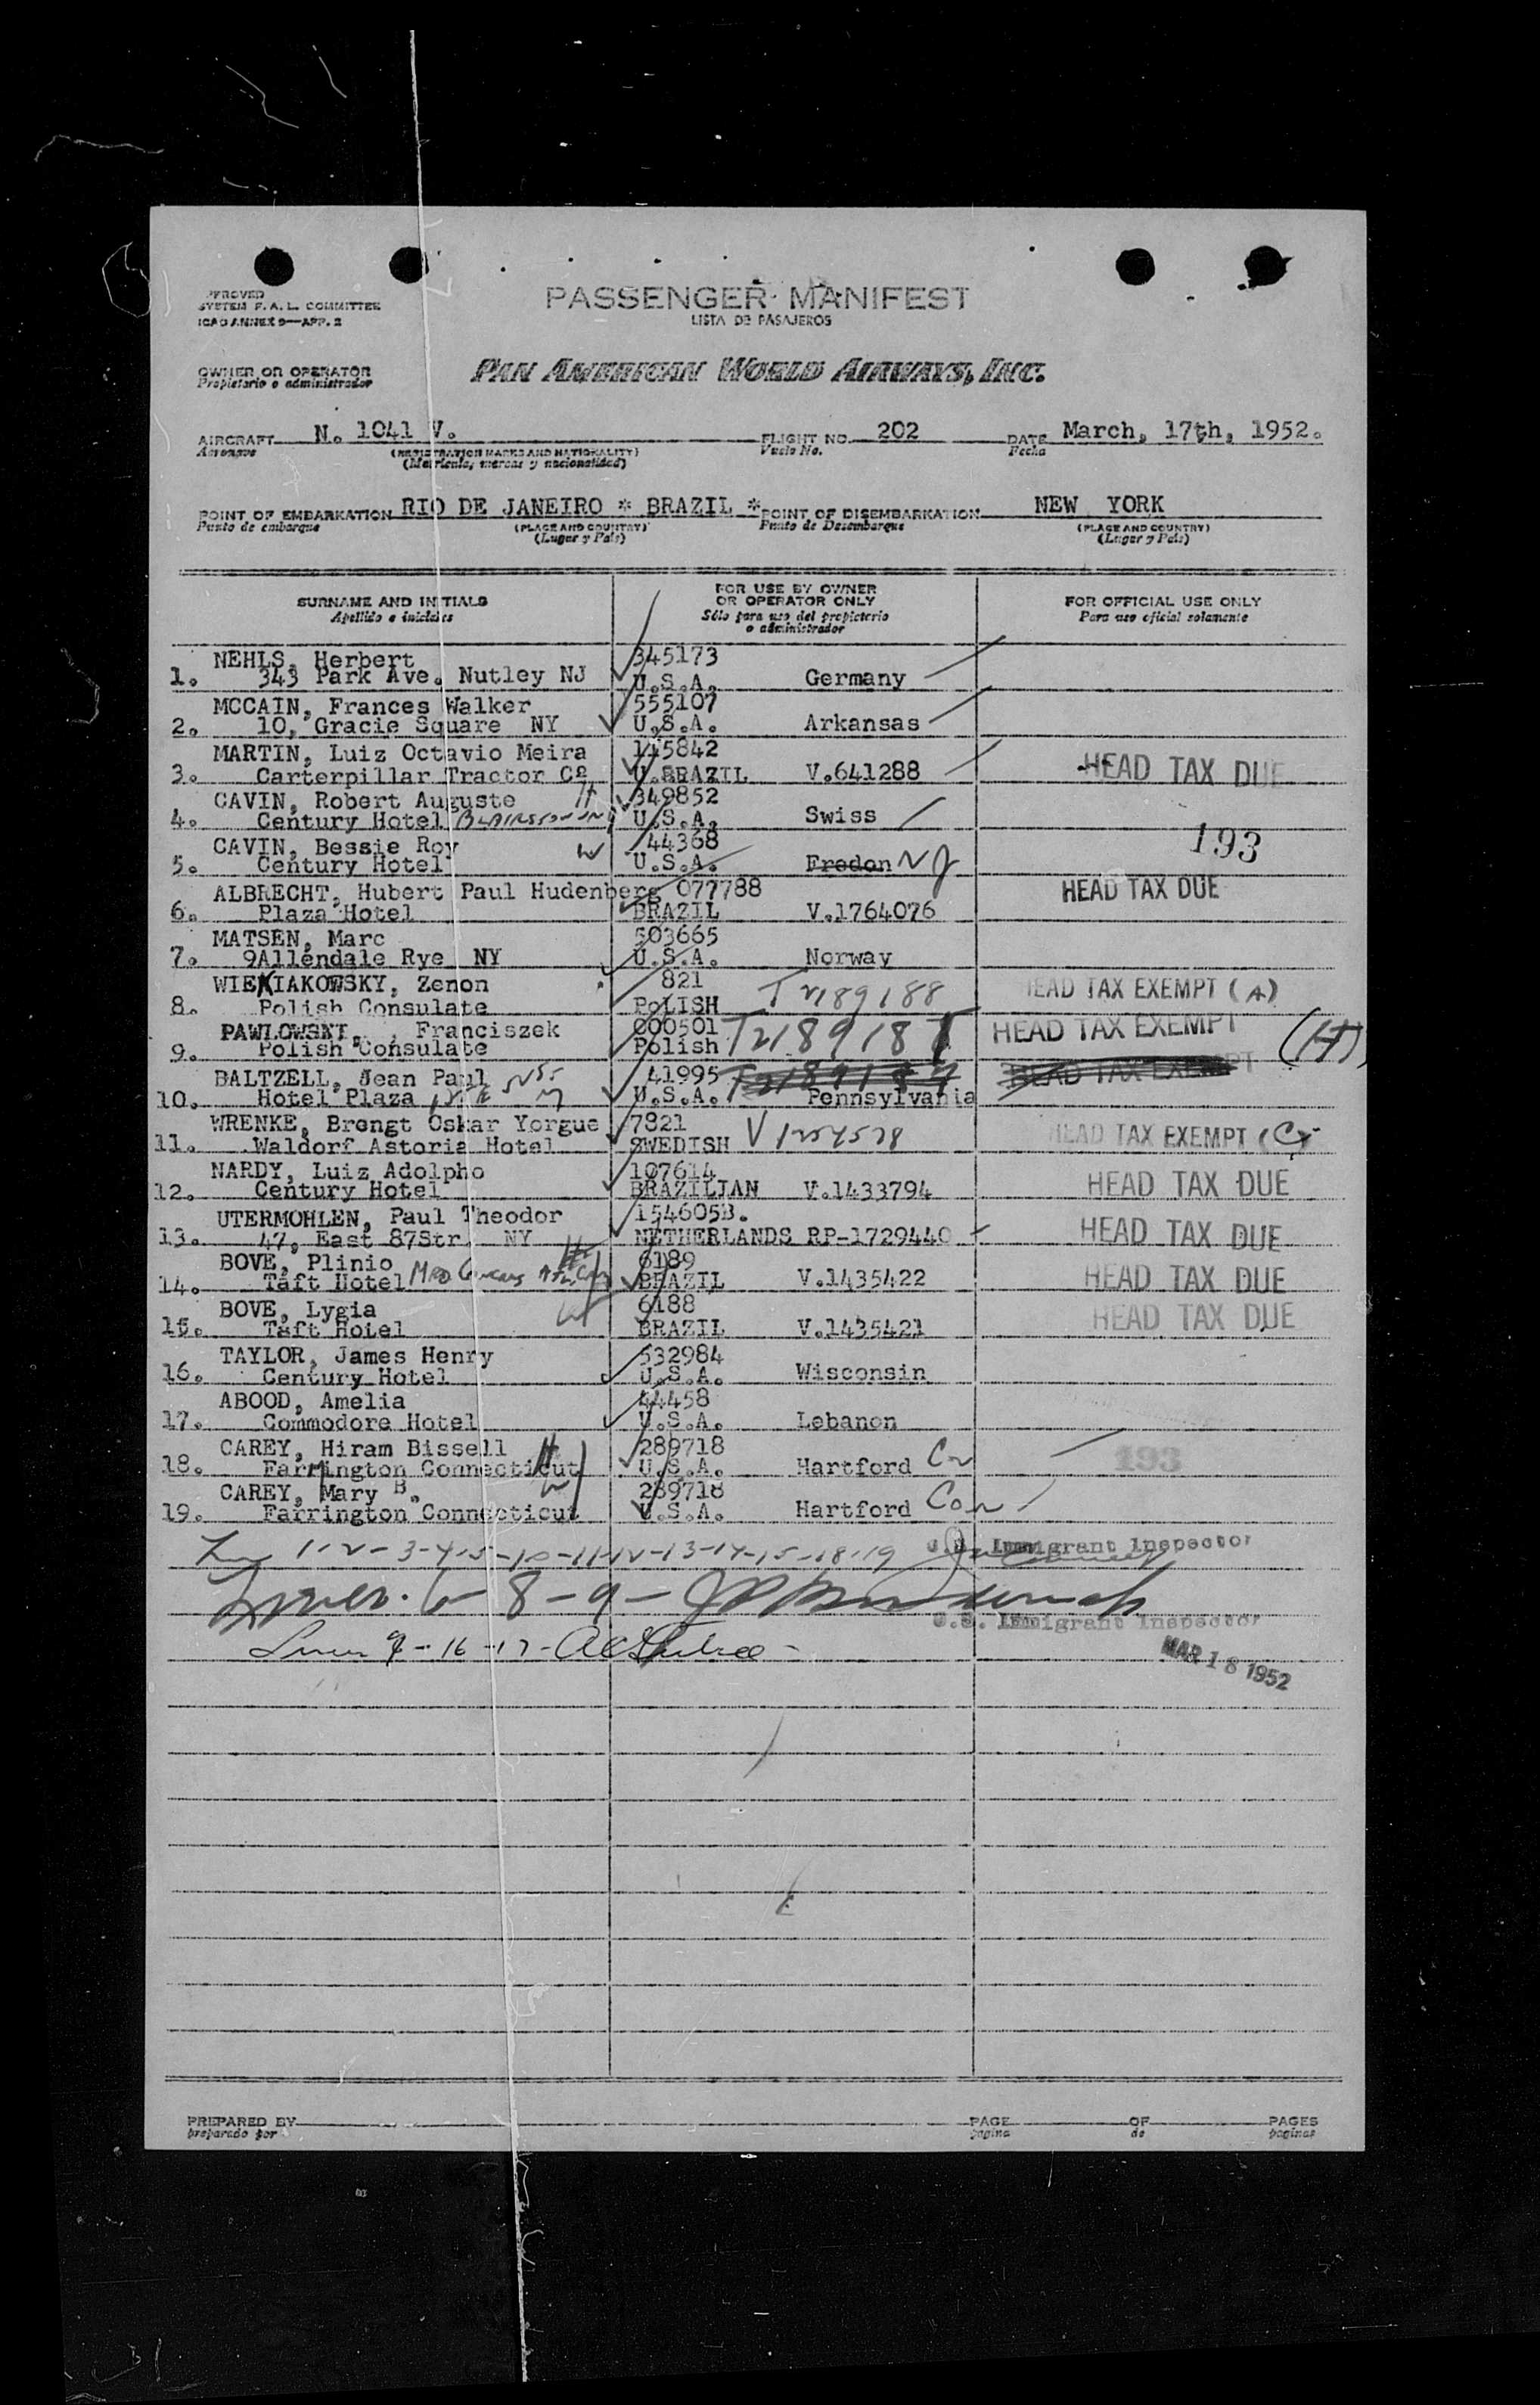 PROVED
SYSTEM F. A. L. COMMITTEE
ICAO ANNEX 9—APP. 2
PASSENGER MANIFEST
LISTA DE PASAJEROS
OWNER OR OPERATOR
Propietario o administrador
PAN AMERICAN WORLD AIRWAYS, INC.
AIRCRAFT N. 1041 V. FLIGHT NO. 202 DATE March, 17th, 1952.
Aeronave (REGISTRATION MARKS AND NATIONALITY) Vuelo No. Fecha
(Matricula, marcas y nacionalidad)
POINT OF EMBARKATION RIO DE JANEIRO * BRAZIL * POINT OF DISEMBARKATION NEW YORK
Punto de embarque (PLACE AND COUNTRY) Punto de Desembarque (PLACE AND COUNTRY)
(Lugar y País) (Lugar y País)
SURNAME AND INITIALS
Apellido e iniciales
FOR USE BY OWNER
OR OPERATOR ONLY
Sólo para uso del propietario
o administrador
FOR OFFICIAL USE ONLY
Para uso oficial solamente
NEHLS, Herbert 345173
1. 343 Park Ave. Nutley NJ U.S.A. Germany
MCCAIN, Frances Walker 555107
2. 10, Gracie Square NY U.S.A. Arkansas
MARTIN, Luiz Octavio Meira 145842
3. Carterpillar Tractor Cº U.BRAZIL V.641288 HEAD TAX DUE
CAVIN, Robert Auguste H 349852
4. Century Hotel U.S.A. Swiss
CAVIN, Bessie Roy W 44368 193
5. Century Hotel U.S.A. Fredon NJ
ALBRECHT, Hubert Paul Hudenberg 077788 HEAD TAX DUE
6. Plaza Hotel BRAZIL V.1764076
MATSEN, Marc 503665
7. 9Allendale Rye NY U.S.A. Norway
WIENIAKOWSKY, Zenon 821 T2189188 HEAD TAX EXEMPT (A)
8. Polish Consulate POLISH
PAWLOWSKI, , Franciszek 000501 T2189187 HEAD TAX EXEMPT (H)
9. Polish Consulate Polish
BALTZELL, Jean Paul 41995 T2189187 HEAD TAX EXEMPT
10. Hotel Plaza U.S.A. Pennsylvania
WRENKE, Brengt Oskar Yorgue 7821 V1254578 HEAD TAX EXEMPT (C)
11. Waldorf Astoria Hotel SWEDISH
NARDY, Luiz Adolpho 107614
12. Century Hotel BRAZILIAN V.1433794 HEAD TAX DUE
UTERMOHLEN, Paul Theodor 154605B.
13. 47, East 87Str NY NETHERLANDS RP-1729440 HEAD TAX DUE
BOVE, Plinio H 6189
14. Taft Hotel BRAZIL V.1435422 HEAD TAX DUE
BOVE, Lygia W 6188
15. Taft Hotel BRAZIL V.1435421 HEAD TAX DUE
TAYLOR, James Henry 532984
16. Century Hotel U.S.A. Wisconsin
ABOOD, Amelia 44458
17. Commodore Hotel U.S.A. Lebanon
CAREY, Hiram Bissell H 289718
18. Farmington Connecticut U.S.A. Hartford Cn 193
CAREY, Mary B. W 289718
19. Farrington Connecticut U.S.A. Hartford Con
1-2-3-4-5-10-11-12-13-14-15-18-19 U.S. Immigrant Inspector
6-8-9-
U.S. Immigrant Inspector
-16-17-
MAR 18 1952
PREPARED BY PAGE OF PAGES
preparado por pagina de paginas